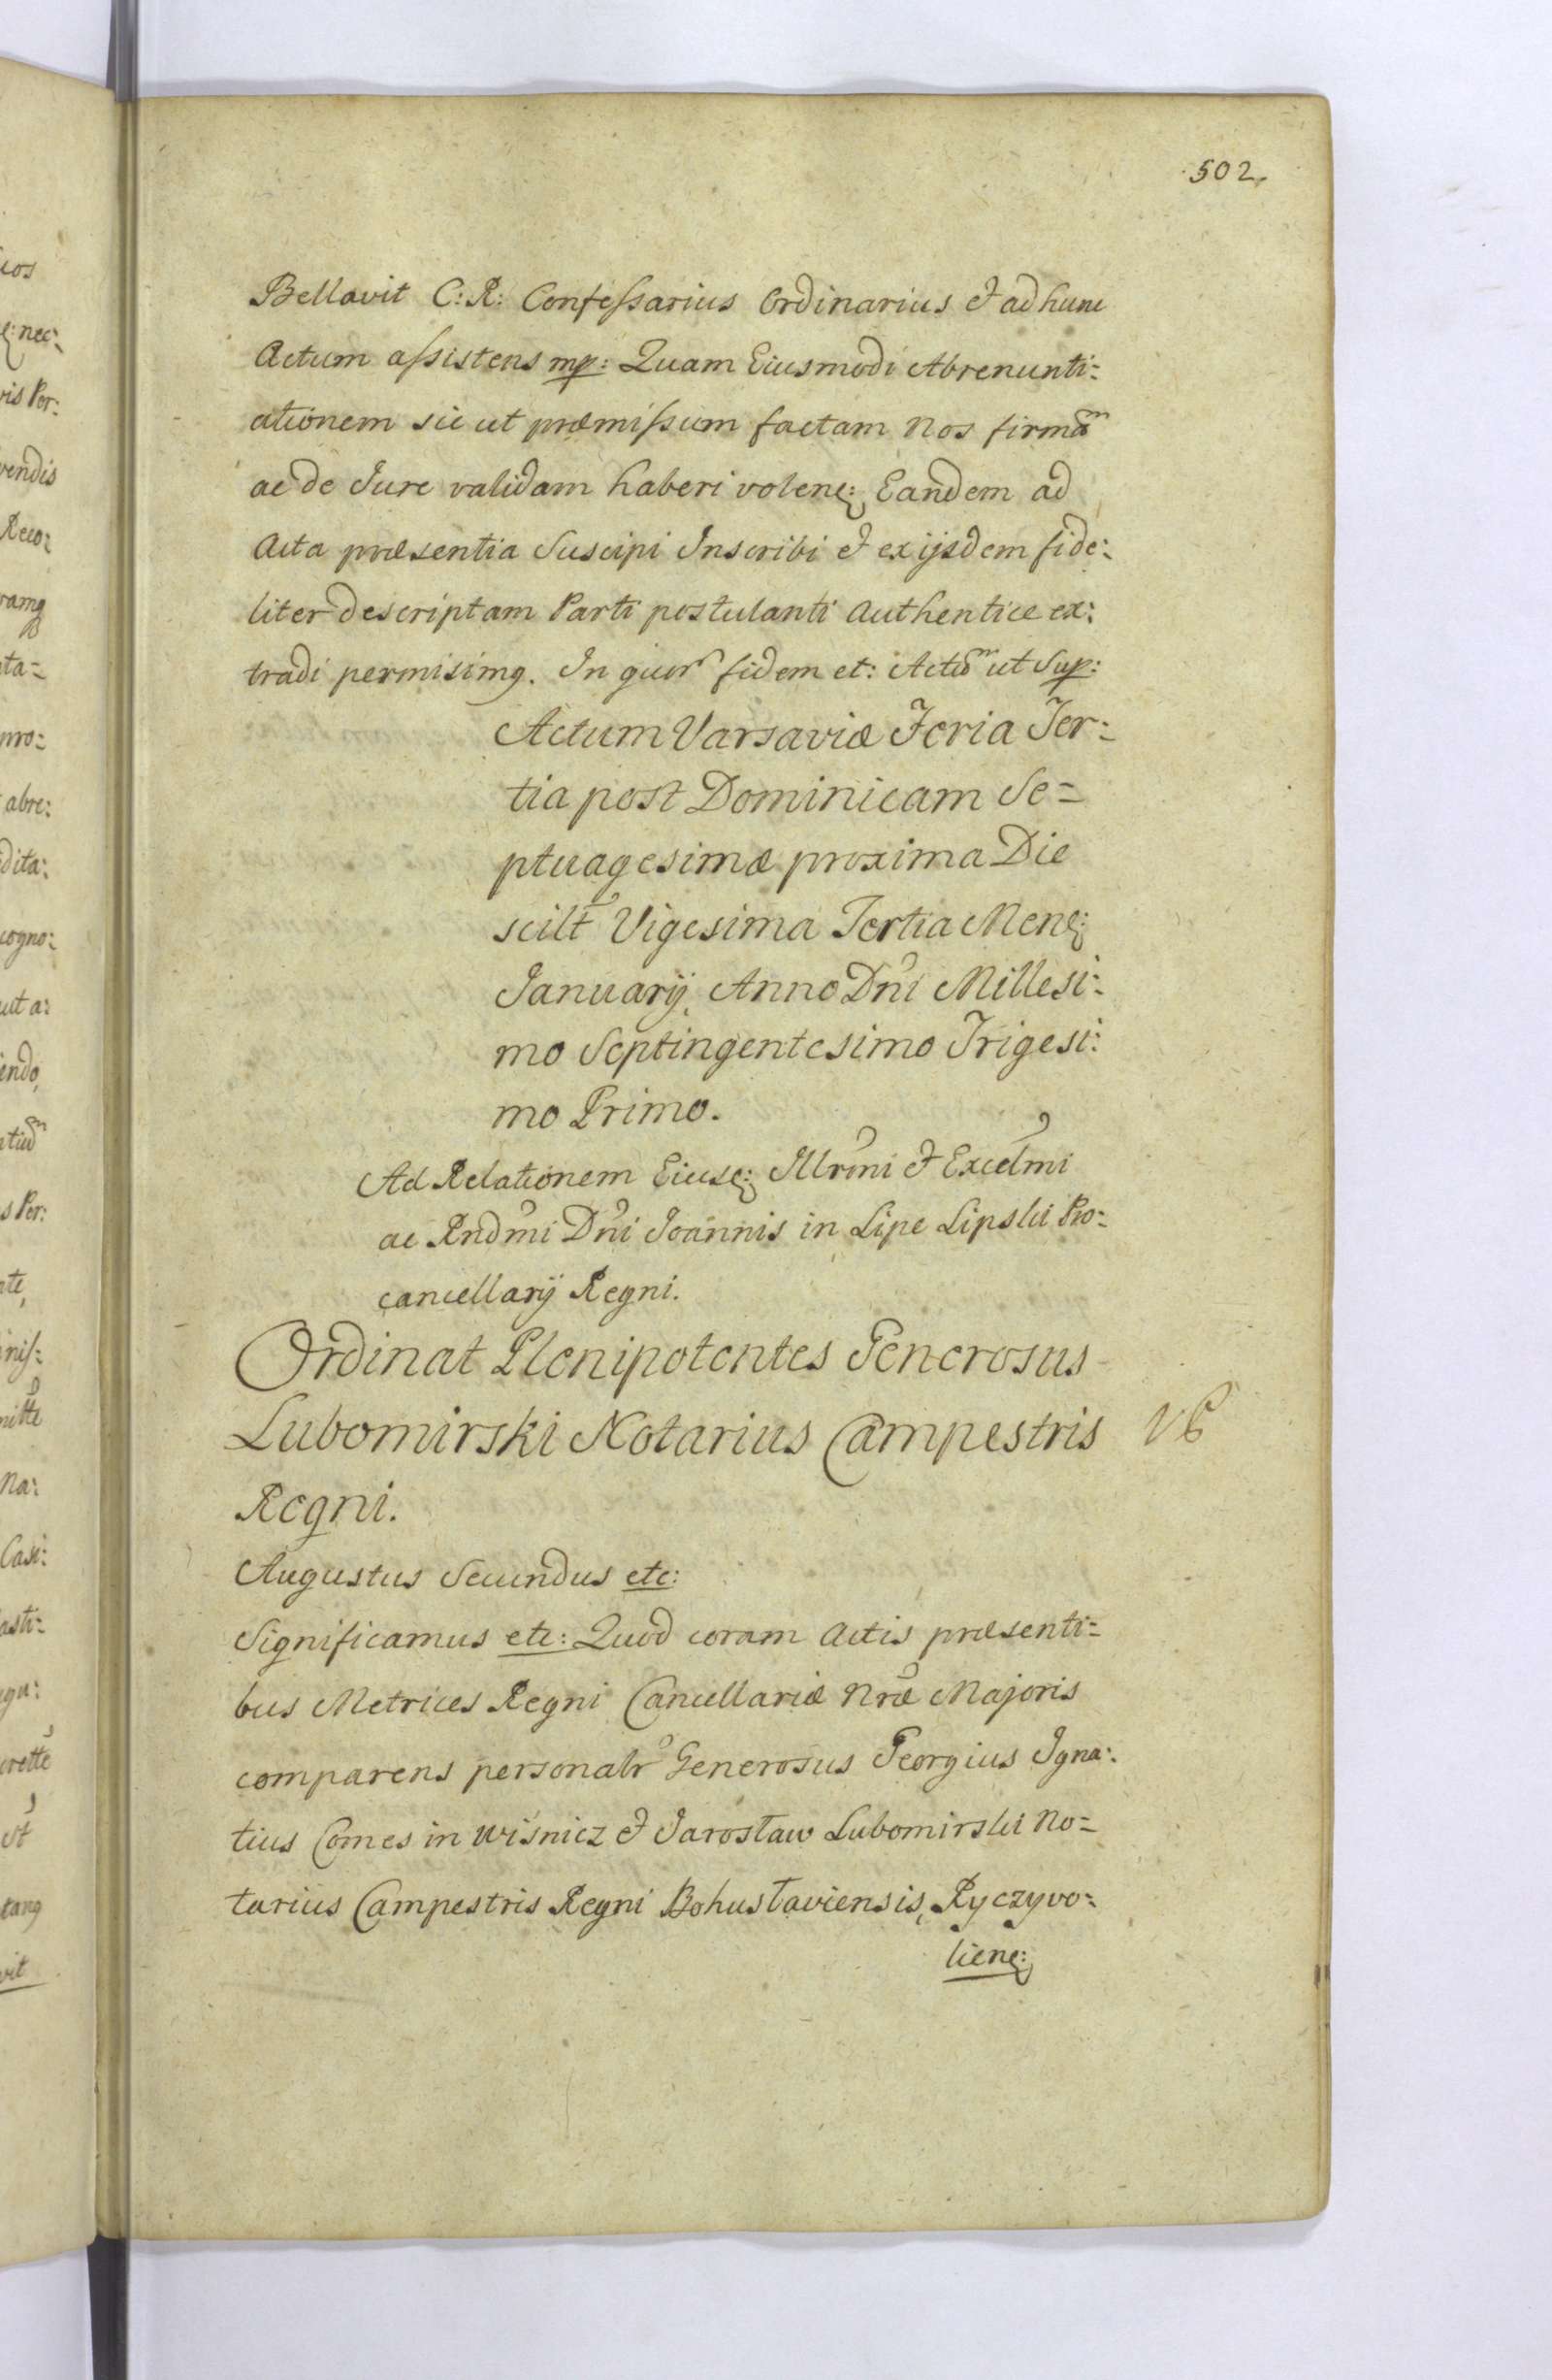 502.
Bellavit C: R: Confeſsarius Ordinarius et ad hunc
Actum aſsistens mp: Quam Eiusmodi Abrenunti:
ationem sic ut præmiſsum factam Nos firmam
ac de Jure validam haberi volen: Eandem ad
Acta præsentia Suscipi Inscribi et ex ijsdem fide:
liter descriptam Parti postulanti Authentice ex:
tradi permisimq. In quor fidem et: Actum ut Sup:
Actum Varsaviæ Feria Ter:
tia post Dominicam Se=
ptuagesimæ proxima Die
scilt Vigesima Tertia Men:
Januarij, Anno Dni Millesi:
mo Septingentesimo Trigesi:
mo Primo.
Ad Relationem Eiusd: Illrmi et Excelmi
ac Rndmi Dni Joannis in Lipe Lipski Pro:
cancellarij Regni.
Ordinat Plenipotentes Generosus
Lubomirski Notarius Campestris
Regni.
Augustus Secundus etc:
Significamus etc: Quod coram Actis præsenti=
bus Metrices Regni Cancellariæ Nræ Majoris
comparens personalr Generosus Georgius Igna:
tius Comes in Wiśnicz et Jarosław Lubomirski No=
tarius Campestris Regni Bohusłaviensis, Ryczyvo:
lien: